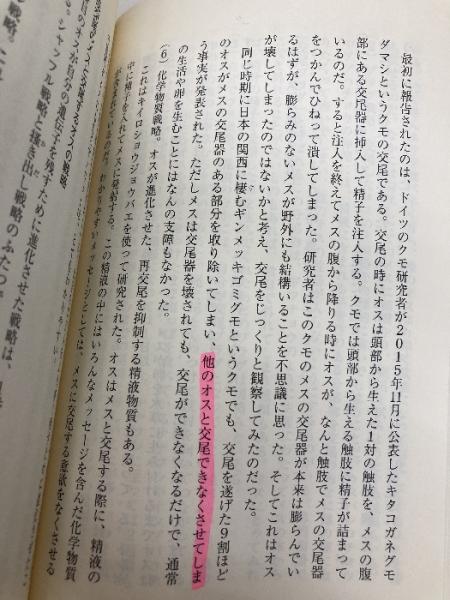 最初に報告されたのは、ドイツのクモ研究者が2015年11月に公表したキタコガネグモ
ダマシというクモの交尾である。交尾の時にオスは頭部から生えた1対の触肢を、メスの腹
部にある交尾器に挿入して精子を注入する。クモでは頭部から生える触肢に精子が詰まって
いるのだ。すると注入を終えてメスの腹から降りる時にオスが、なんと触肢でメスの交尾器
をつかんでひねって潰してしまった。研究者はこのクモのメスの交尾器が本来は膨らんでい
るはずが、膨らみのないメスが野外にも結構いることを不思議に思った。そしてこれはオス
が壊してしまったのではないかと考え、交尾をじっくりと観察してみたのだった。
同じ時期に日本の関西に棲むギンメッキゴミグモというクモでも、交尾を遂げた9割ほど
のオスがメスの交尾器のある部分を取り除いてしまい、他のオスと交尾できなくさせてしま
う事実が発表された。ただしメスは交尾器を壊されても、交尾ができなくなるだけで、通常
の生活や卵を生むことにはなんの支障もなかった。
(6) 化学物質戦略。オスが進化させた、再交尾を抑制する精液物質もある。
これはキイロショウジョウバエを使って研究された。オスはメスと交尾する際に、精液の
中に
この精液の中にはいろんなメッセージを含んだ化学物質
わかりやすいメッセージとしては、メスに交尾する意欲をなくさせる
残すために進化させた戦略は、
シャッフル戦略と掻き出し戦略のふたつ